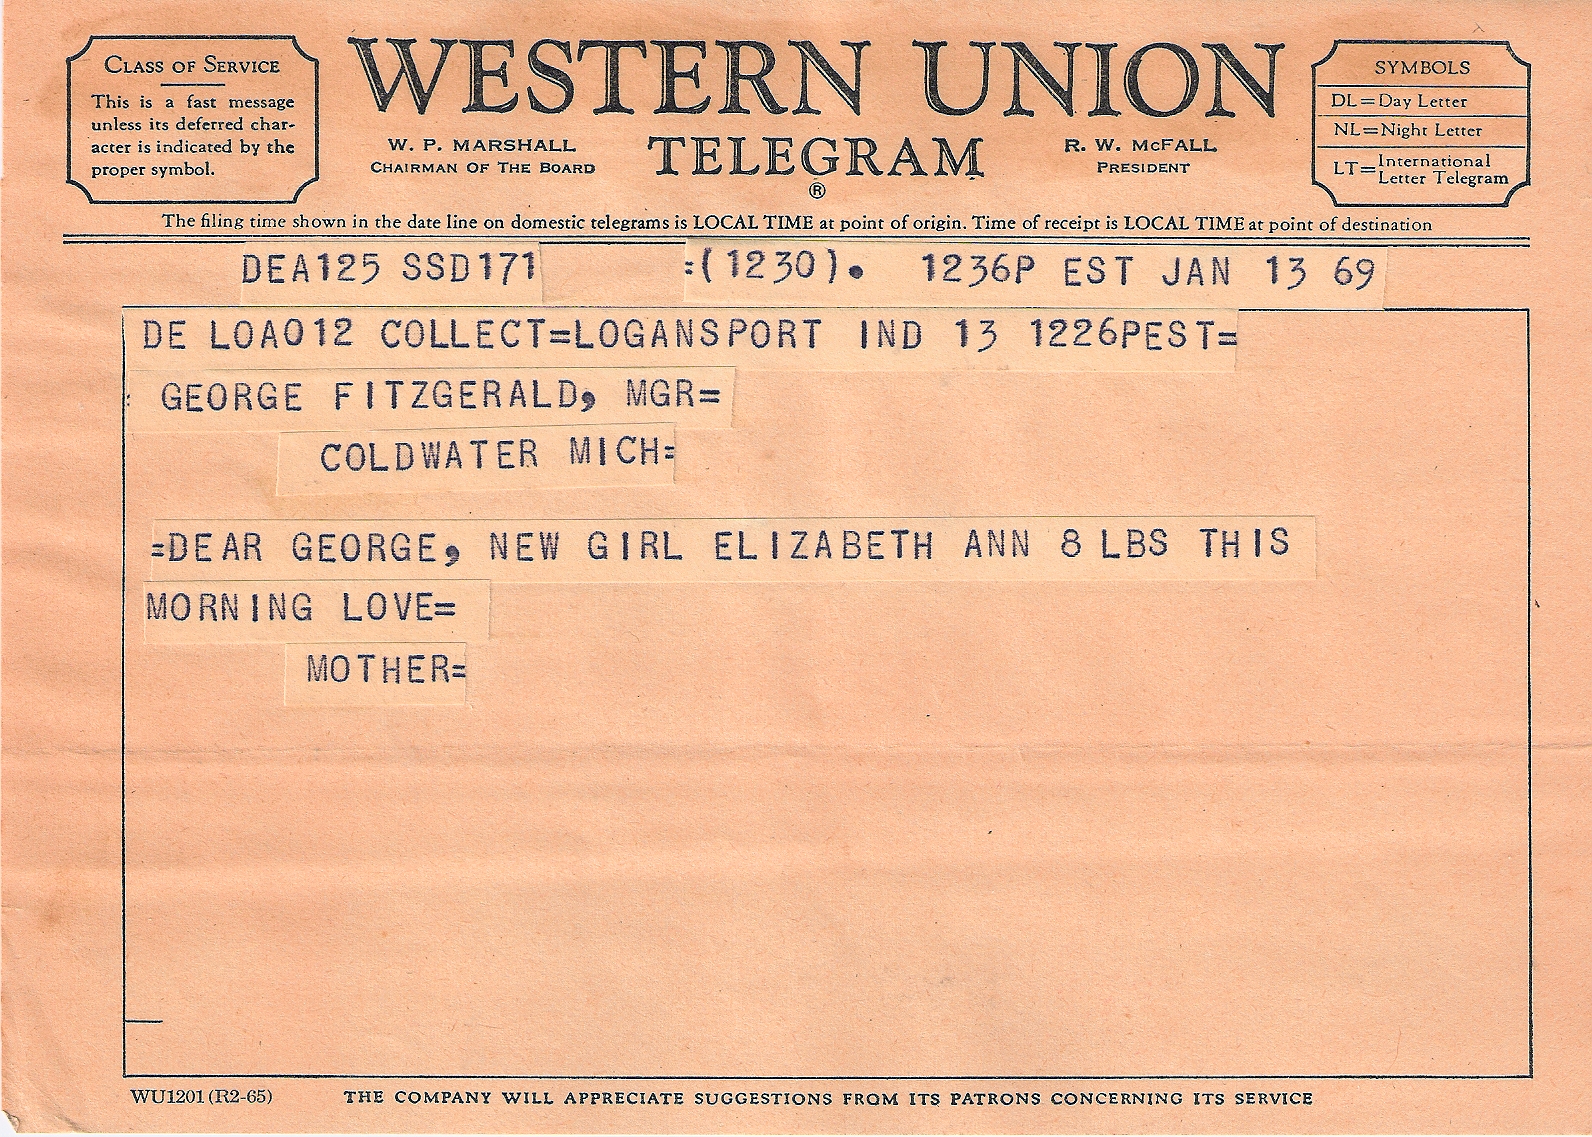 CLASS OF SERVICE
This is a fast message
unless its deferred char-
acter is indicated by the
proper symbol.
WESTERN UNION
TELEGRAM
®
W. P. MARSHALL
CHAIRMAN OF THE BOARD
R. W. McFALL
PRESIDENT
SYMBOLS
DL=Day Letter
NL=Night Letter
LT=International
Letter Telegram
The filing time shown in the date line on domestic telegrams is LOCAL TIME at point of origin. Time of receipt is LOCAL TIME at point of destination
DEA125 SSD171 =(1230). 1236P EST JAN 13 69
DE LOA012 COLLECT=LOGANSPORT IND 13 1226PEST=
: GEORGE FITZGERALD, MGR=
COLDWATER MICH=
=DEAR GEORGE, NEW GIRL ELIZABETH ANN 8 LBS THIS
MORNING LOVE=
MOTHER=
WU1201 (R2-65) THE COMPANY WILL APPRECIATE SUGGESTIONS FROM ITS PATRONS CONCERNING ITS SERVICE